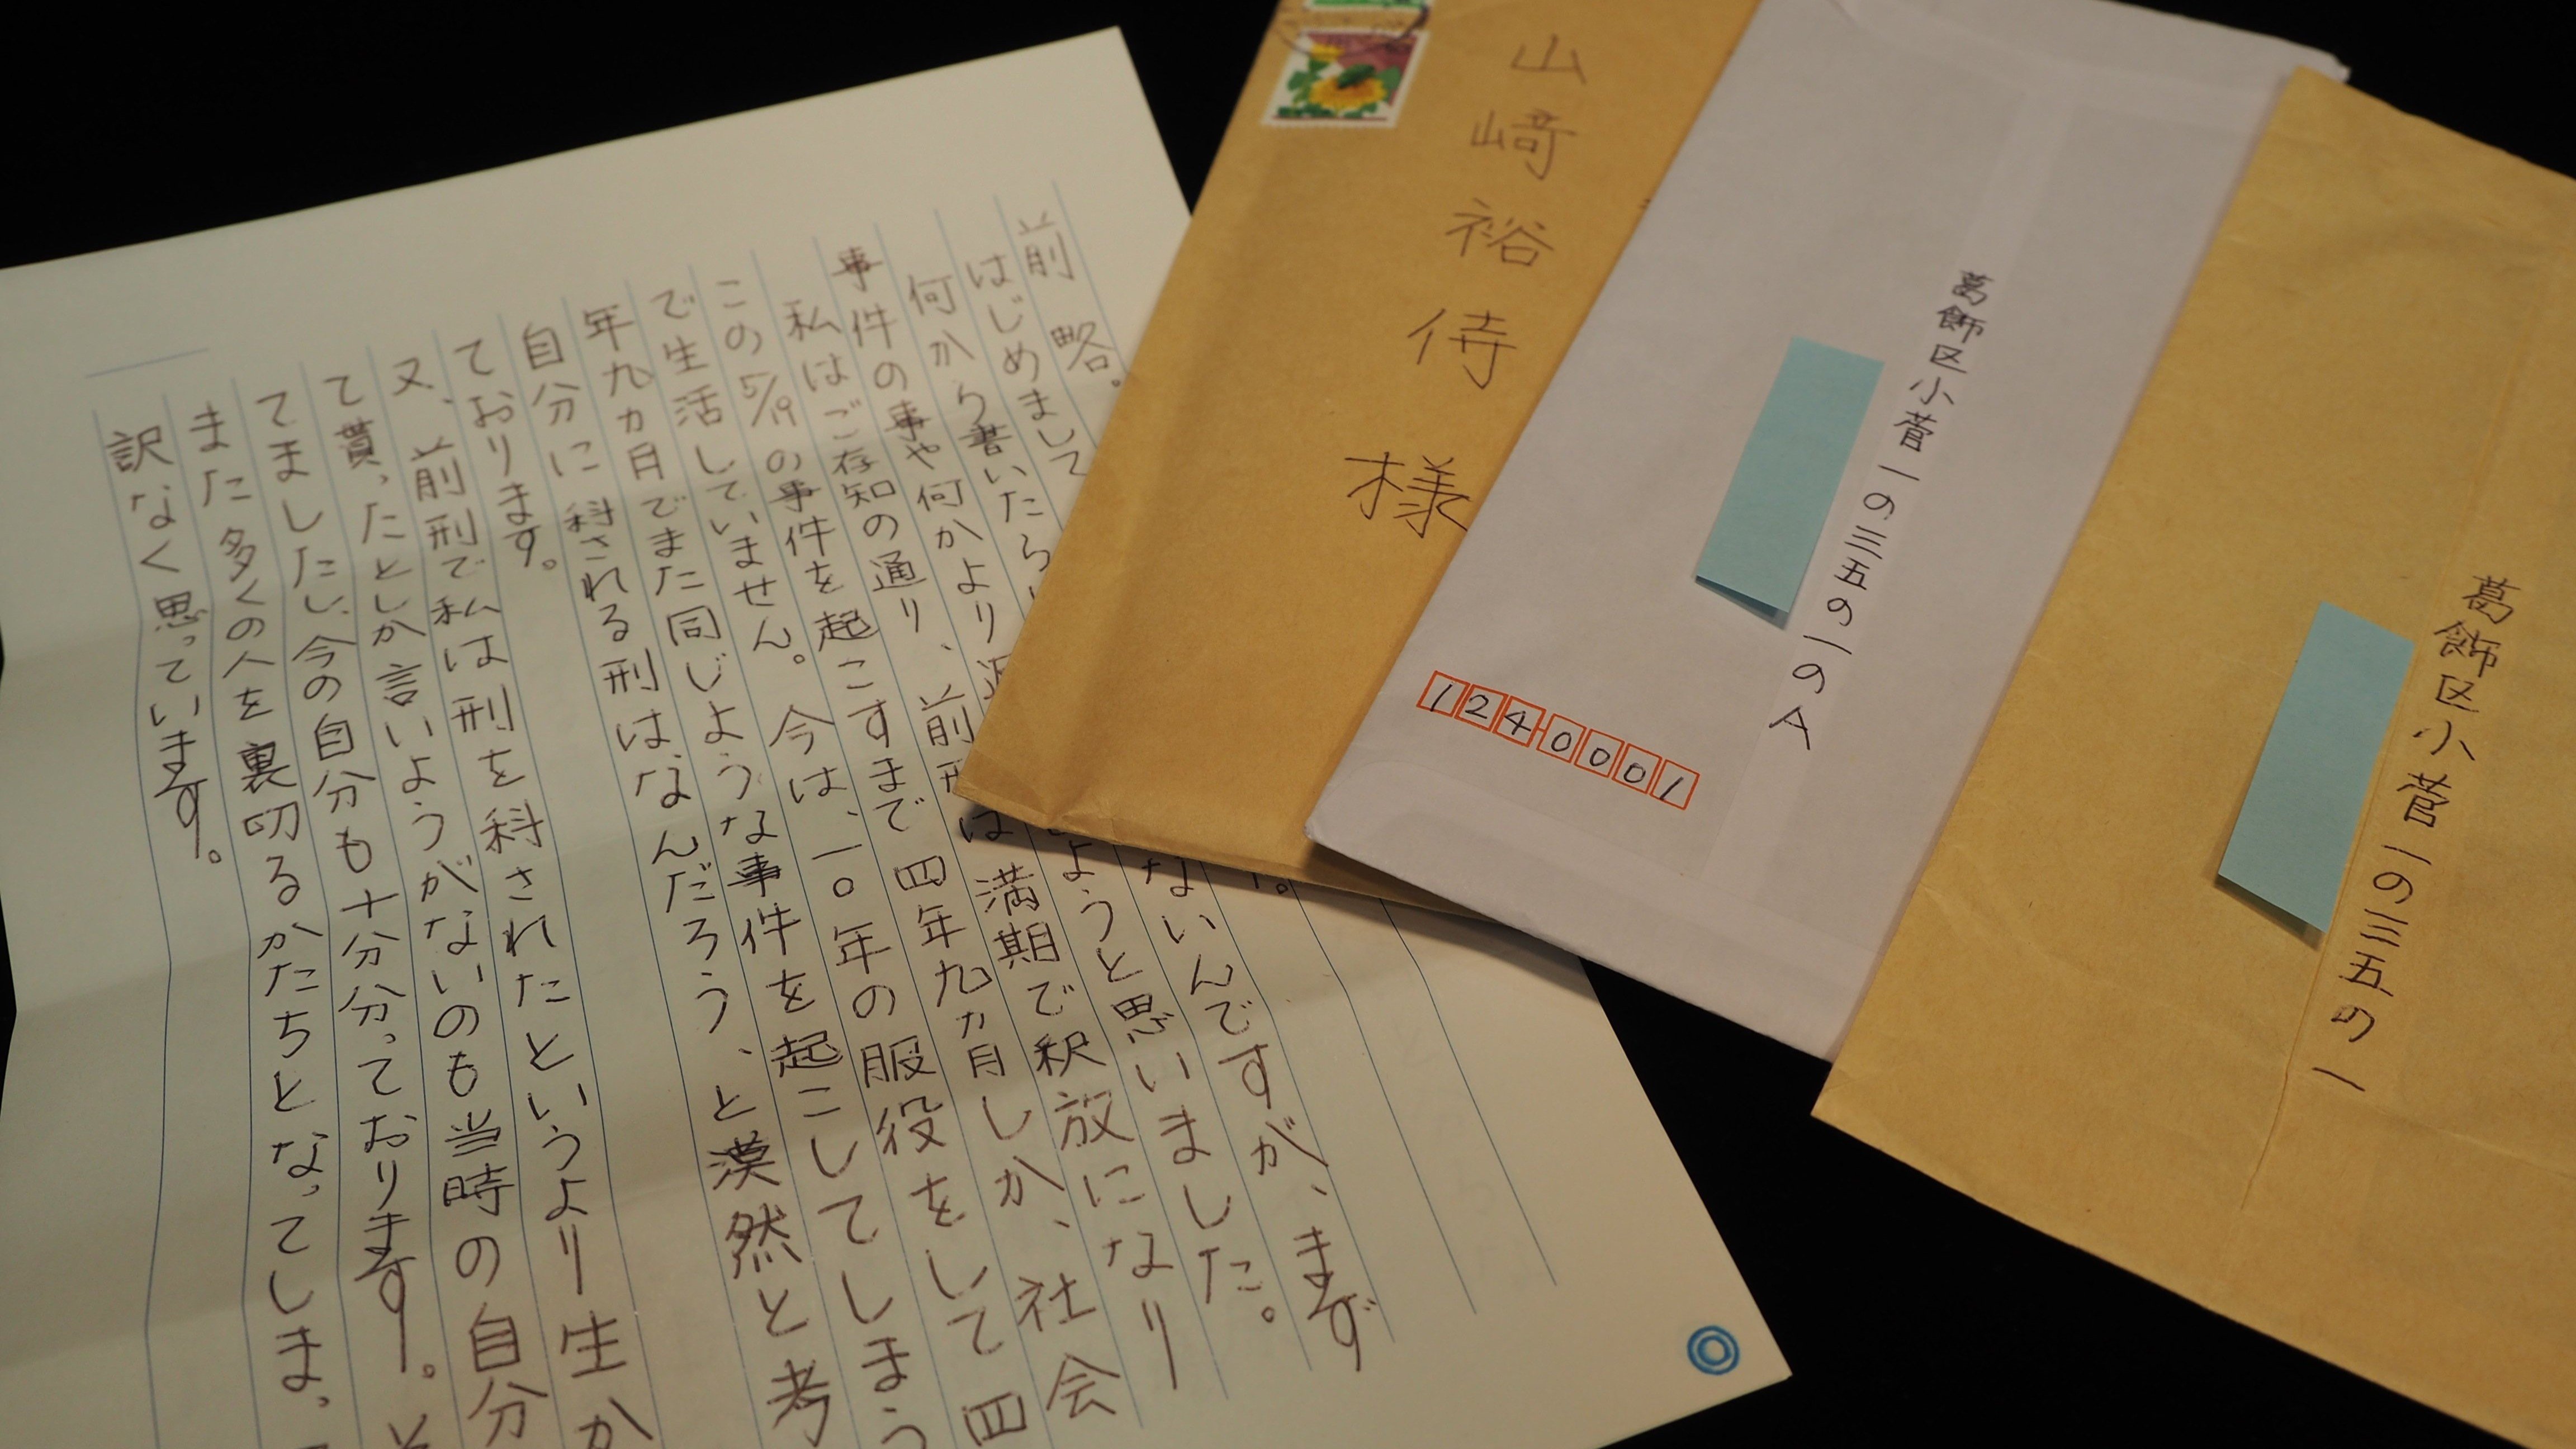 前略。
はじめまして 。
何から書いたら ないんですが、まず
事件の事や何かより ようと思いました。
私はご存知の通り、前刑は満期で釈放になり
この5/19の事件を起こすまで四年九ヵ月しか、社会
で生活していません。今は、一〇年の服役をして四
年九ヵ月でまた同じような事件を起こしてしまう
自分に科される刑はなんだろう、と漠然と考
ております。
又、前刑で私は刑を科されたというより生か
て貰ったとしか言いようがないのも当時の自分
てましたし、今の自分も十分分っております。そ
また多くの人を裏切るかたちとなってしまっ
訳なく思っています。
山﨑裕侍様
葛飾区小菅一の三五の一のA
124-0001
葛飾区小菅一の三五の一